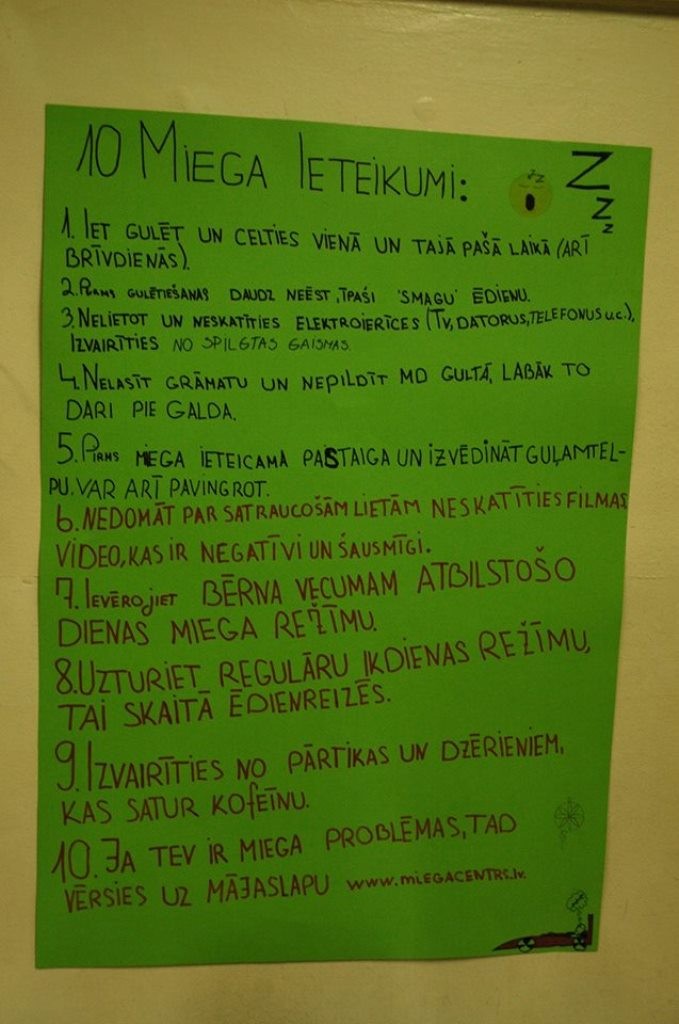 10 MIEGA IETEIKUMI:
Z
Z
Z
zz
1. IET GULĒT UN CELTIES VIENĀ UN TAJĀ PAŠĀ LAIKĀ (ARĪ
BRĪVDIENĀS).
2. PIRMS GULĒTIEŠANAS DAUDZ NEĒST, ĪPAŠI 'SMAGU' ĒDIENU.
3. NELIETOT UN NESKATĪTIES ELEKTROIERĪCES (TV, DATORUS, TELEFONUS u.c.),
IZVAIRĪTIES NO SPILGTAS GAISMAS.
4. NELASĪT GRĀMATU UN NEPILDĪT MD GULTĀ, LABĀK TO
DARI PIE GALDA.
5. PIRMS MIEGA IETEICAMA PASTAIGA UN IZVĒDINĀT GUĻAMTEL-
PU. VAR ARĪ PAVINGROT.
6. NEDOMĀT PAR SATRAUCOŠĀM LIETĀM NESKATĪTIES FILMAS,
VIDEO, KAS IR NEGATĪVI UN ŠAUSMĪGI.
7. IEVĒROJIET BĒRNA VECUMAM ATBILSTOŠO
DIENAS MIEGA REŽĪMU.
8. UZTURIET REGULĀRU IKDIENAS REŽĪMU,
TAI SKAITĀ ĒDIENREIZĒS.
9. IZVAIRĪTIES NO PĀRTIKAS UN DZĒRIENIEM,
KAS SATUR KOFEĪNU.
10. JA TEV IR MIEGA PROBLĒMAS, TAD
VĒRSIES UZ MĀJASLAPU www.MIEGACENTRS.lv.